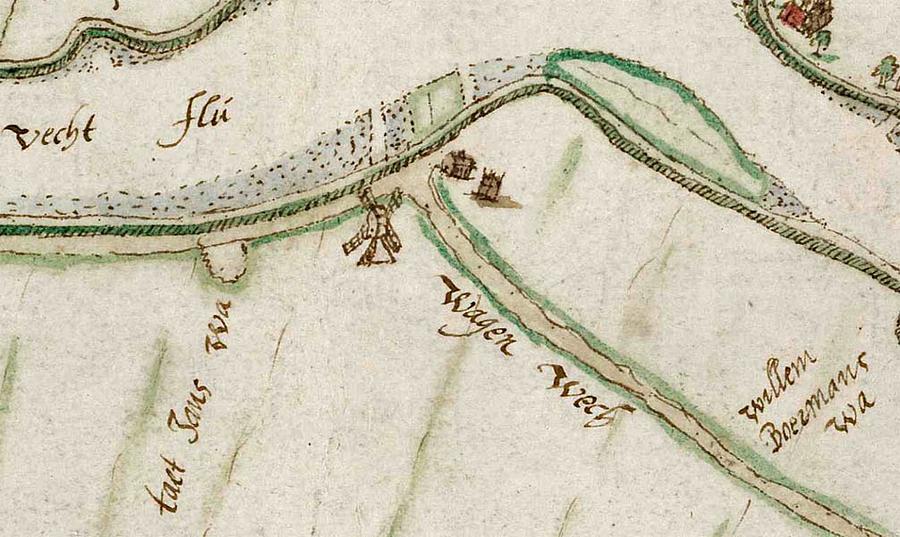 vecht flú
Wagen wech
taet Jans wa
willem
Boermans
wa